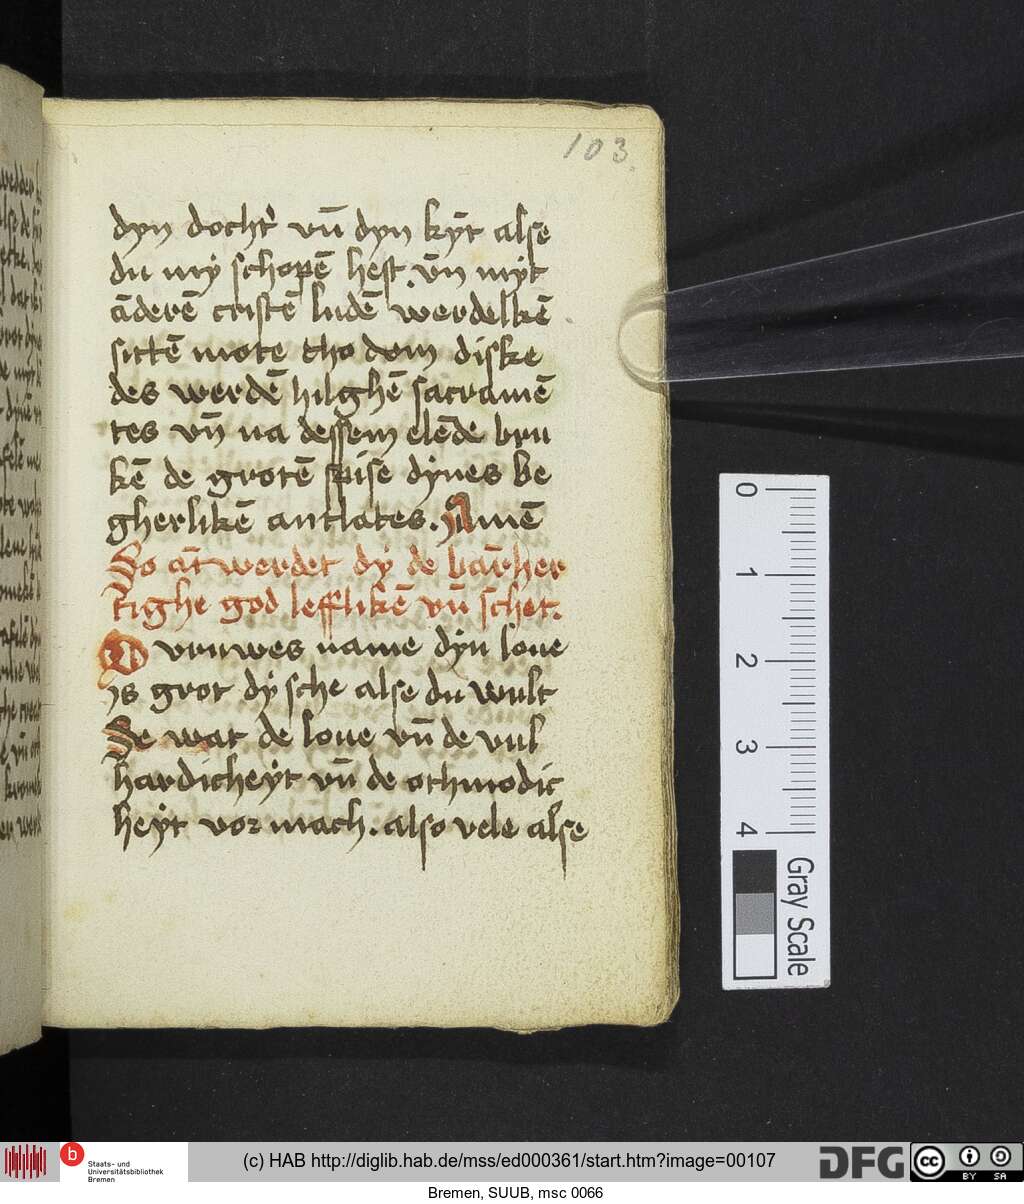 103.
dyn docht' vn̄ dyn kȳt alse
du mÿ schopē hest. vn̄ mÿt
āderē cristē ludē werdelkē
sittē mote tho dem diske
des werdē hilghē sacramē
tes vn̄ na dessem elēde bru
kē de grotē spise dÿnes be
gherlikē antlates. Amē
So āt werdet dÿ de bār her
tighe god lefflikē vn̄ schet.
O vruwes name dÿn loue
ys grot dÿ sche alse du wult
Se wat de loue vn̄ de vul
hardicheÿt vn̄ de othmodic
heÿt vor mach. also vele alse
0 1 2 3 4
Gray Scale
b
Staats- und
Universitätsbibliothek
Bremen
(c) HAB http://diglib.hab.de/mss/ed000361/start.htm?image=00107
DFG
cc BY SA
Bremen, SUUB, msc 0066